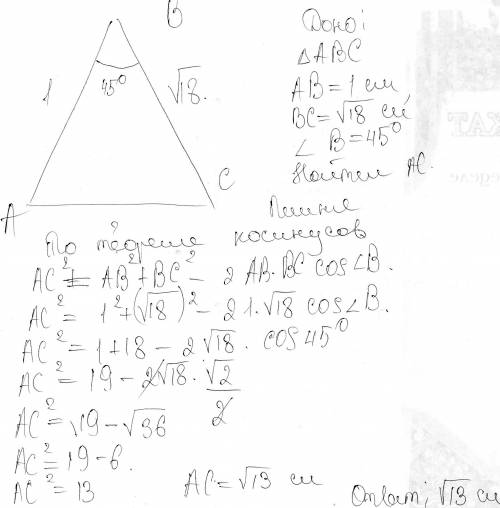 B
45°
1
√18.
A
C
Дано:
△ABC
AB = 1 см
BC = √18 см
∠B = 45°
Найти AC.
По теореме косинусов
AC² = AB² + BC² - 2 AB·BC cos∠B.
AC² = 1² + (√18)² - 2 1·√18 cos∠B.
AC² = 1 + 18 - 2√18 · cos 45°
AC² = 19 - 2√18 · √2/2
AC² = 19 - √36
AC² = 19 - 6.
AC² = 13
AC = √13 см
Ответ: √13 см